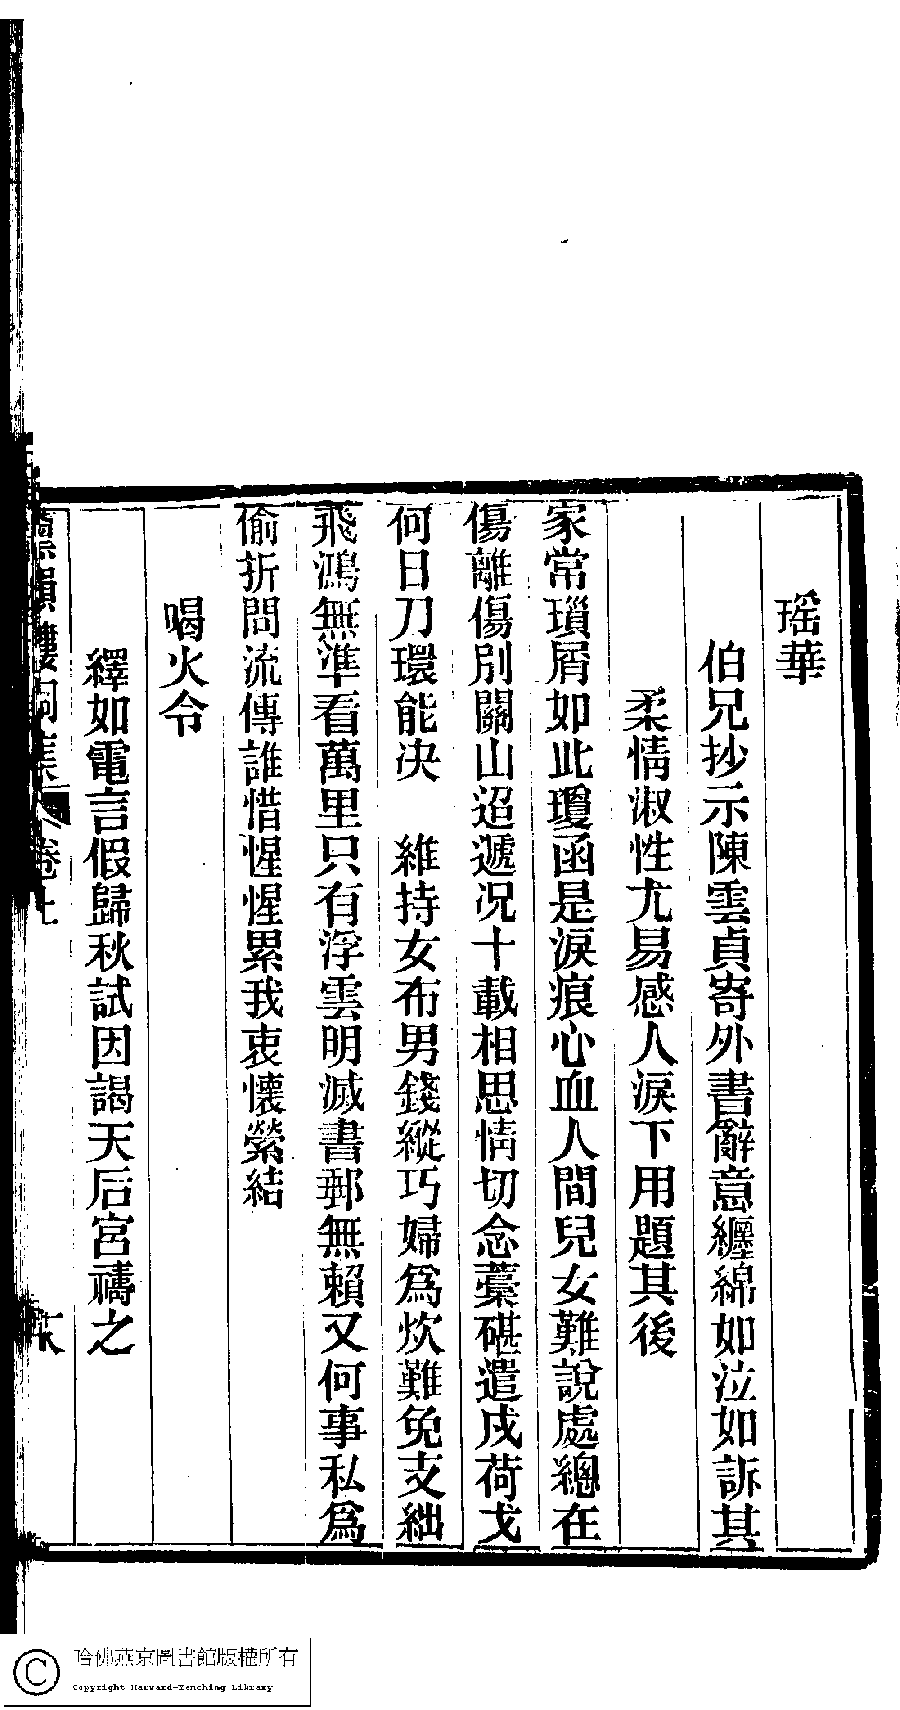 瑶華
伯兄抄示陳雲貞寄外書辭意纏綿如泣如訴其
柔情淑性尤易感人淚下用題其後
家常瑣屑如此瓊函是淚痕心血人間兒女難說處總在
傷離傷別關山迢遞况十載相思情切念藁碪遣戍荷戈
何日刀環能決　維持女布男錢縱巧婦爲炊難免支絀
飛鴻無準看萬里只有浮雲明滅書郵無賴又何事私爲
偷折問流傳誰惜惺惺累我衷懷縈結
喝火令
繹如電言假歸秋試因謁天后宮禱之
韻樓詞集
卷上
哈佛燕京圖書館版權所有
Copyright Harvard-Yenching Library